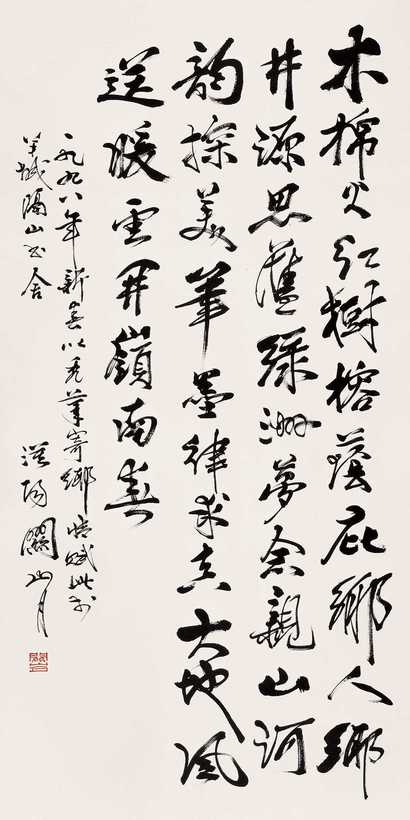 木棉火红树榕荫庇乡人乡
井源思旧绿洲梦念亲山河
韵探美笔墨律求真大地风
送暖云开岭南春
一九九八年新春以秃笔寄乡情赋此于
羊城隔山书舍
漠阳关山月